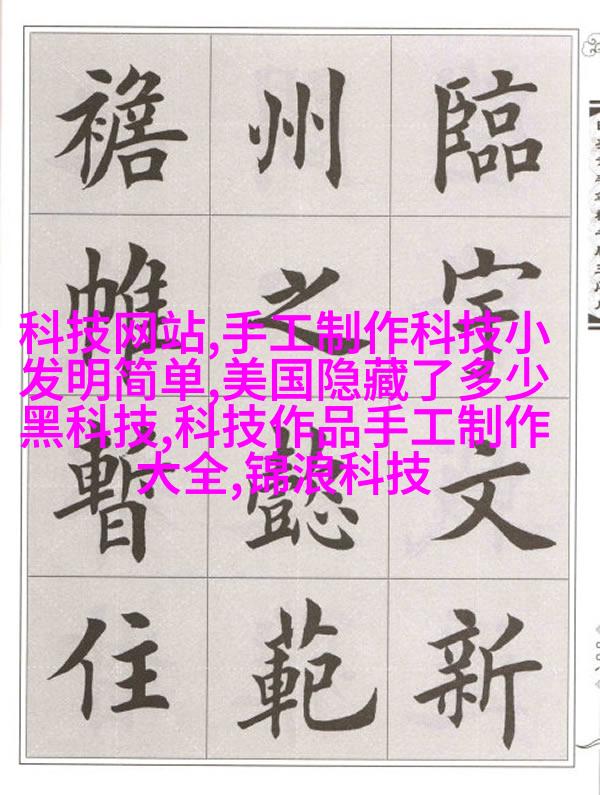 臨宇文新
州之懿範
襜帷暫住
科技网站,手工制作科技小
发明简单,美国隐藏了多少
黑科技,科技作品手工制作
大全,锦浪科技